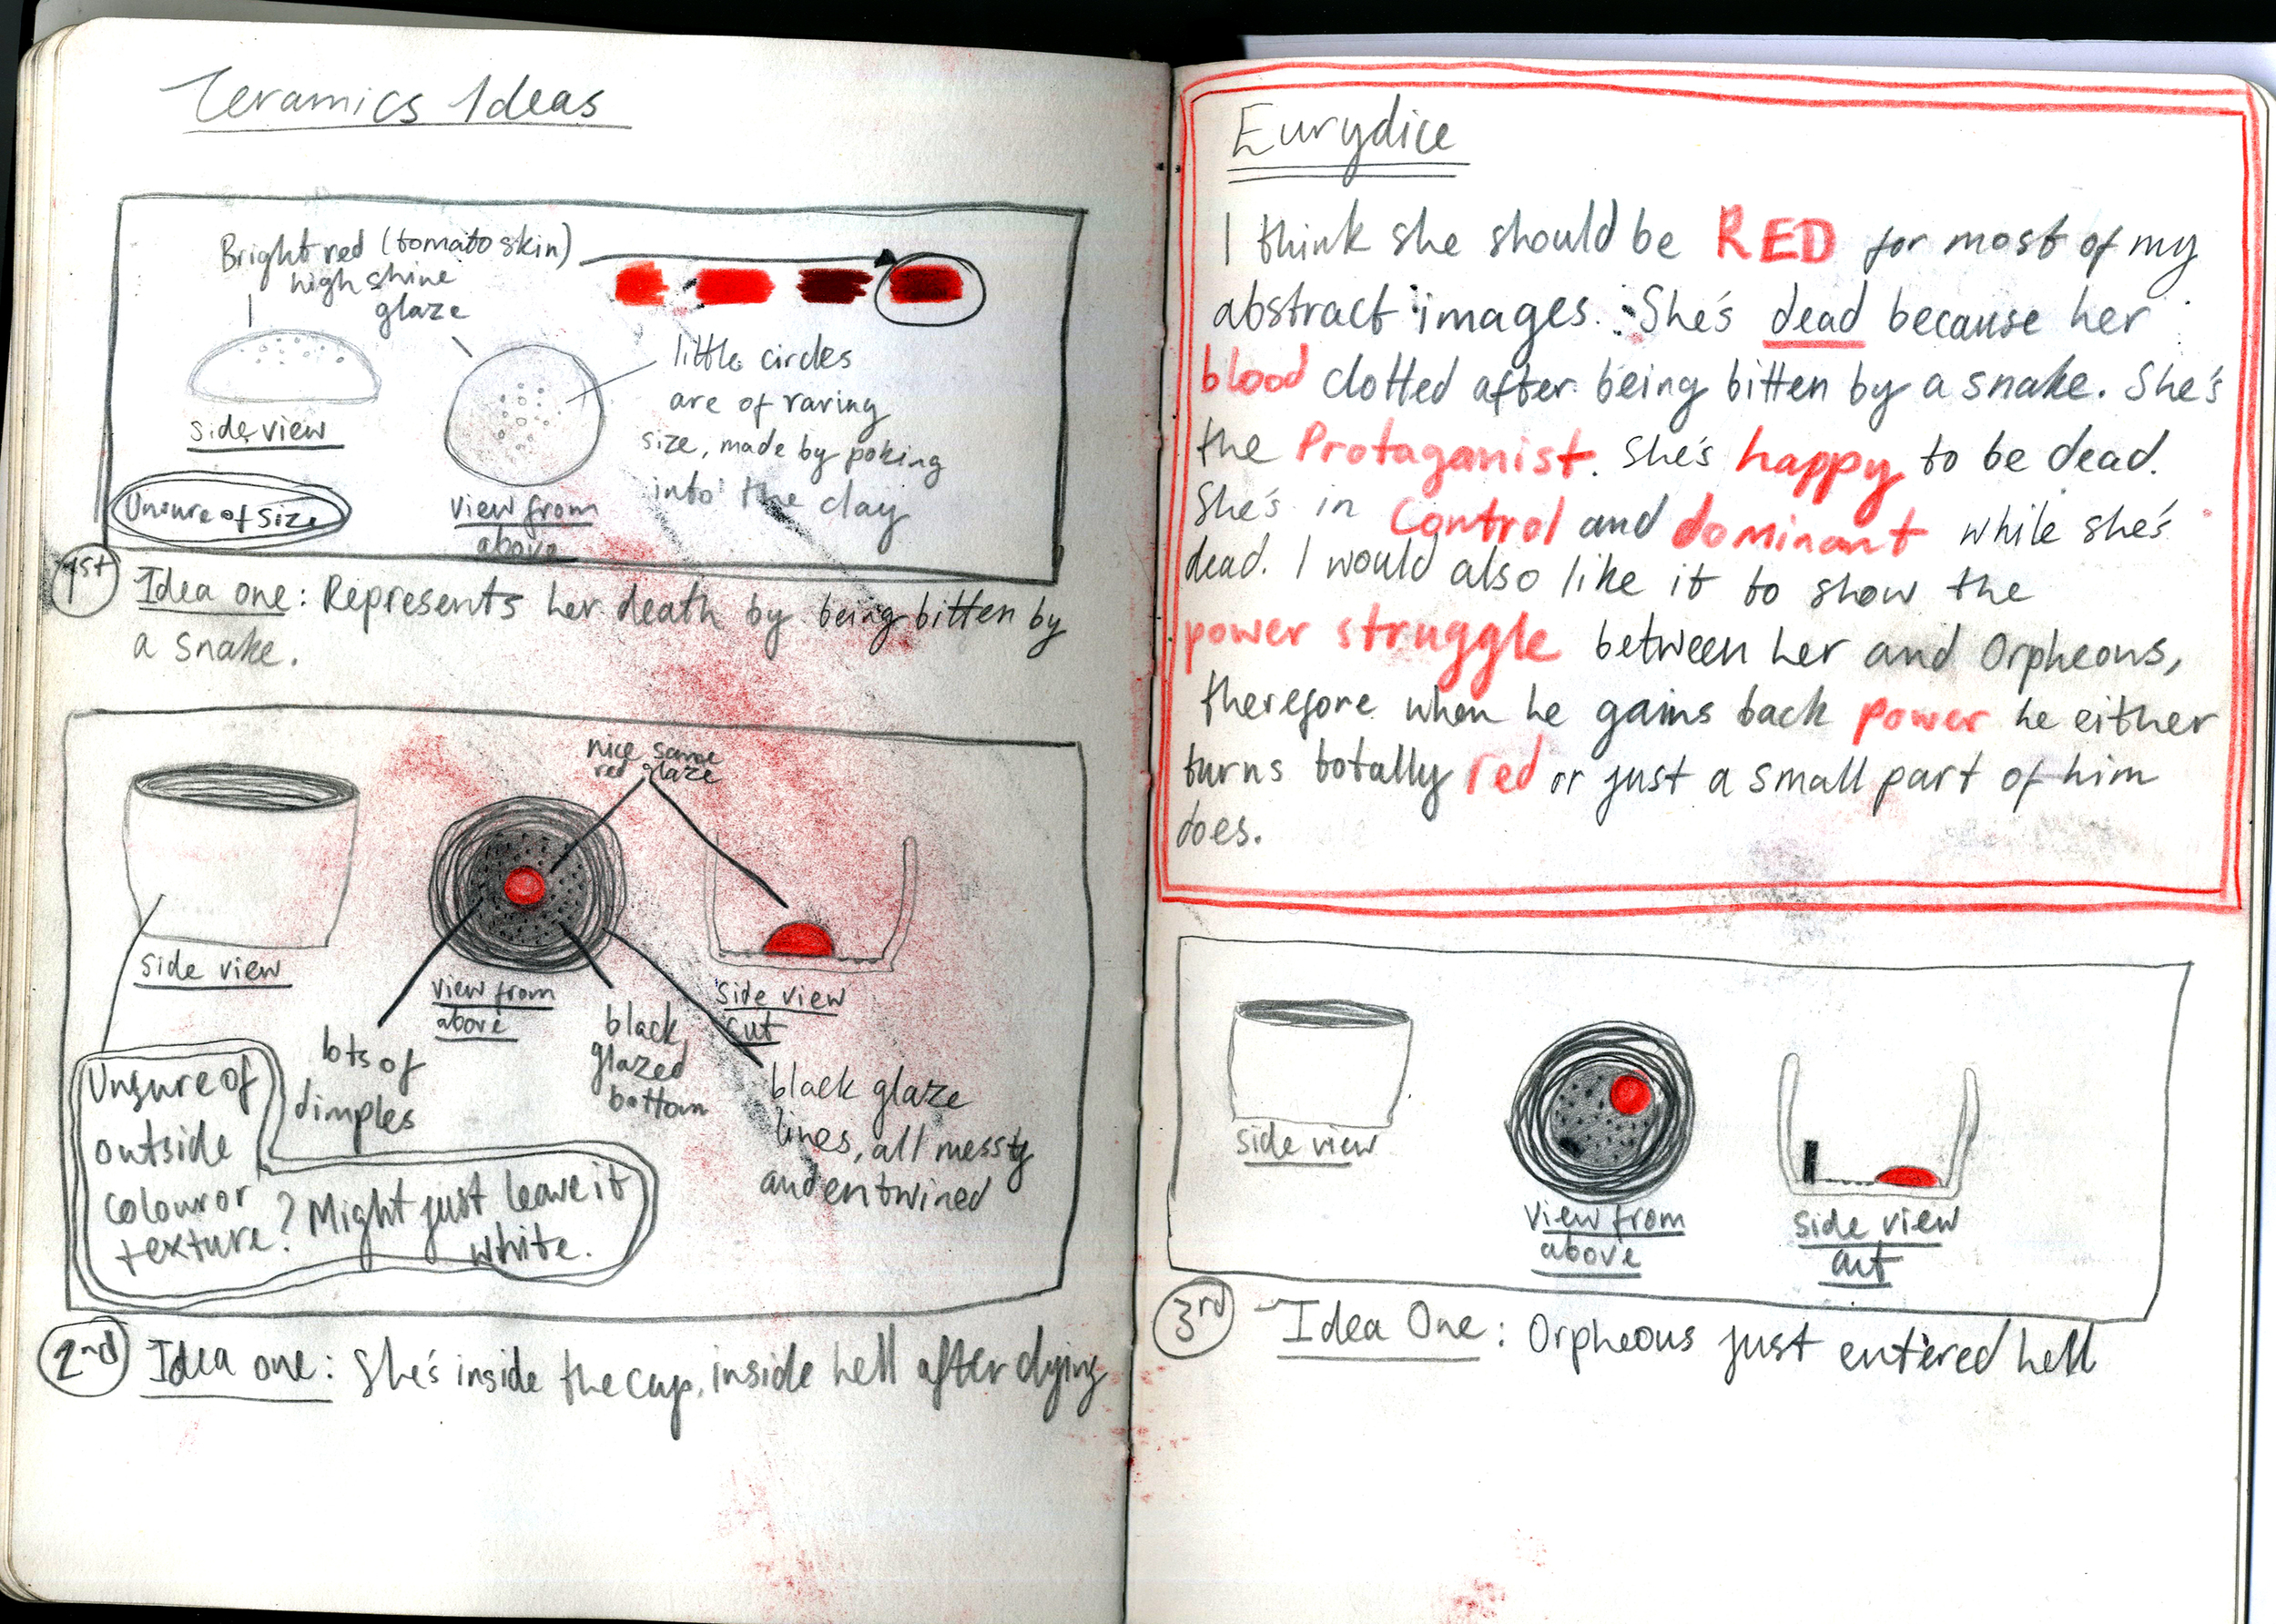 Ceramics Ideas
Bright red (tomato skin)
high shine
glaze
side view
Unsure of size
view from
above
little circles
are of raring
size, made by poking
into the clay
1st Idea one: Represents her death by being bitten by
a snake.
nice same
red glaze
side view
view from
above
side view
cut
lots of
dimples
black
glazed
bottom
black glaze
lines, all messy
and entwined
Unsure of
outside
colour or
texture? Might just leave it
white.
2nd Idea one: She's inside the cup, inside hell after dying
Eurydice
I think she should be RED for most of my
abstract images. She's dead because her
blood clotted after being bitten by a snake. She's
the Protaganist. She's happy to be dead.
She's in control and dominant while she's
dead. I would also like it to show the
power struggle between her and Orpheous,
therefore when he gains back power he either
turns totally red or just a small part of him
does.
side view
view from
above
side view
cut
3rd Idea One: Orpheous just entered hell